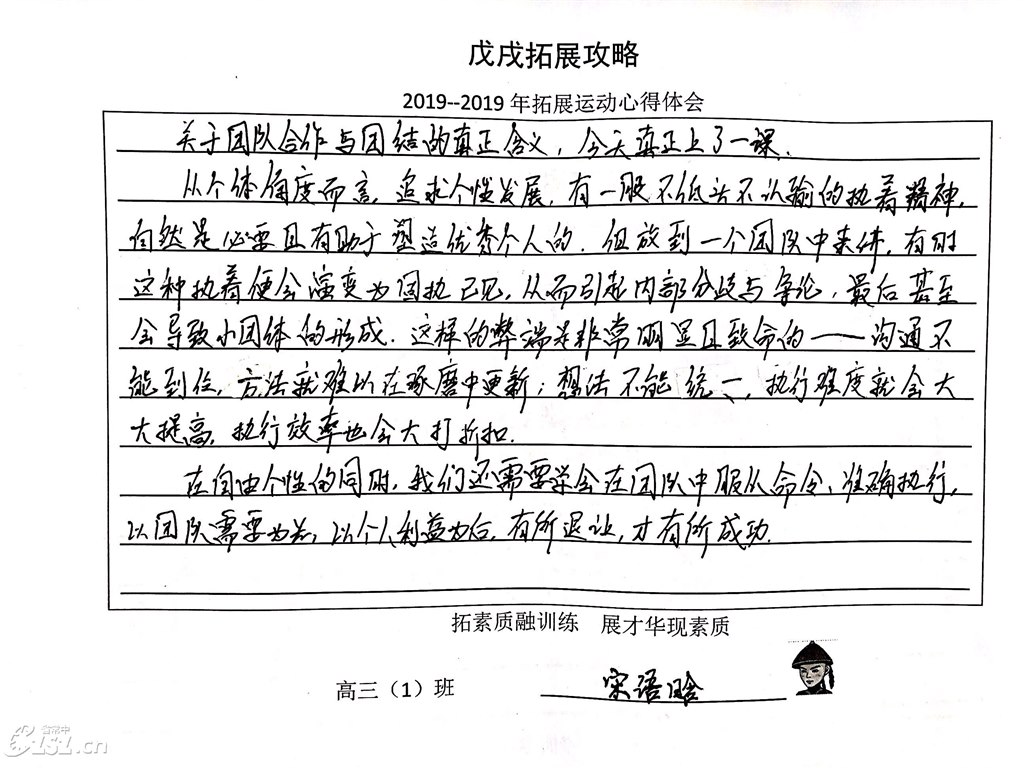 戊戌拓展攻略
2019--2019 年拓展运动心得体会
关于团队合作与团结的真正含义，今天真正上了一课．
从个体角度而言，追求个性发展，有一股不低头不认输的执着精神，
自然是必要且有助于塑造优秀个人的．但放到一个团队中来讲，有时
这种执着便会演变为固执己见，从而引起内部分歧与争论，最后甚至
会导致小团体的形成．这样的弊端是非常明显且致命的——沟通不
能到位，方法就难以在琢磨中更新；想法不能统一，执行难度就会大
大提高，执行效率也会大打折扣．
在自由个性的同时，我们还需要学会在团队中服从命令、准确执行，
以团队需要为先，以个人利益为后，有所退让，才有所成功．
拓素质融训练 展才华现素质
高三（1）班 宋语晗
.cn